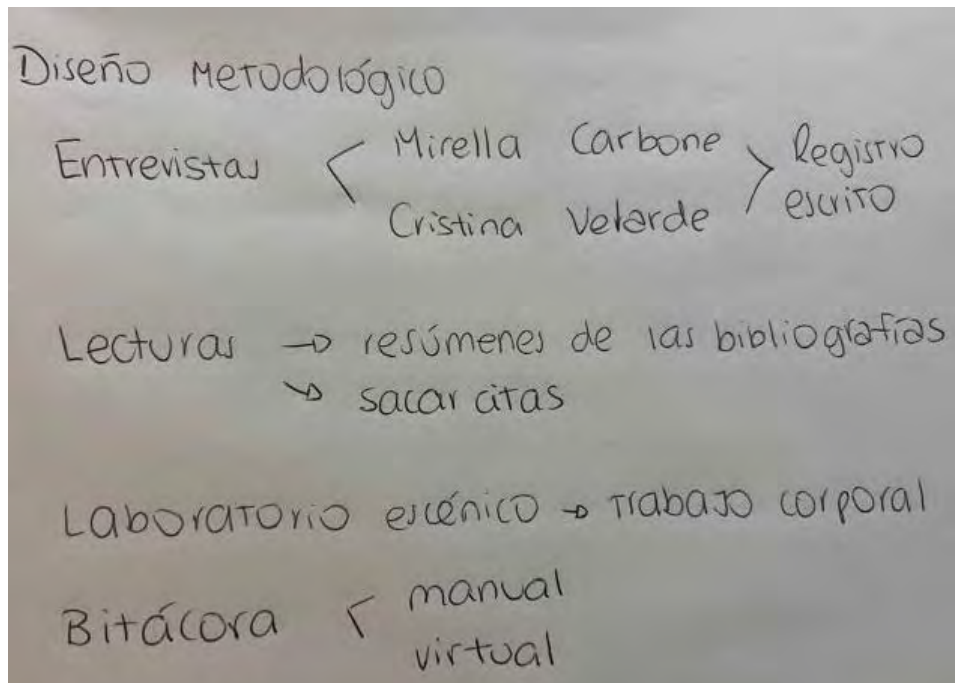 Diseño Metodológico
Entrevistas < Mirella Carbone > Registro escrito
Cristina Velarde
Lecturas → resúmenes de las bibliografías
→ sacar citas
Laboratorio escénico → trabajo corporal
Bitácora < manual
virtual